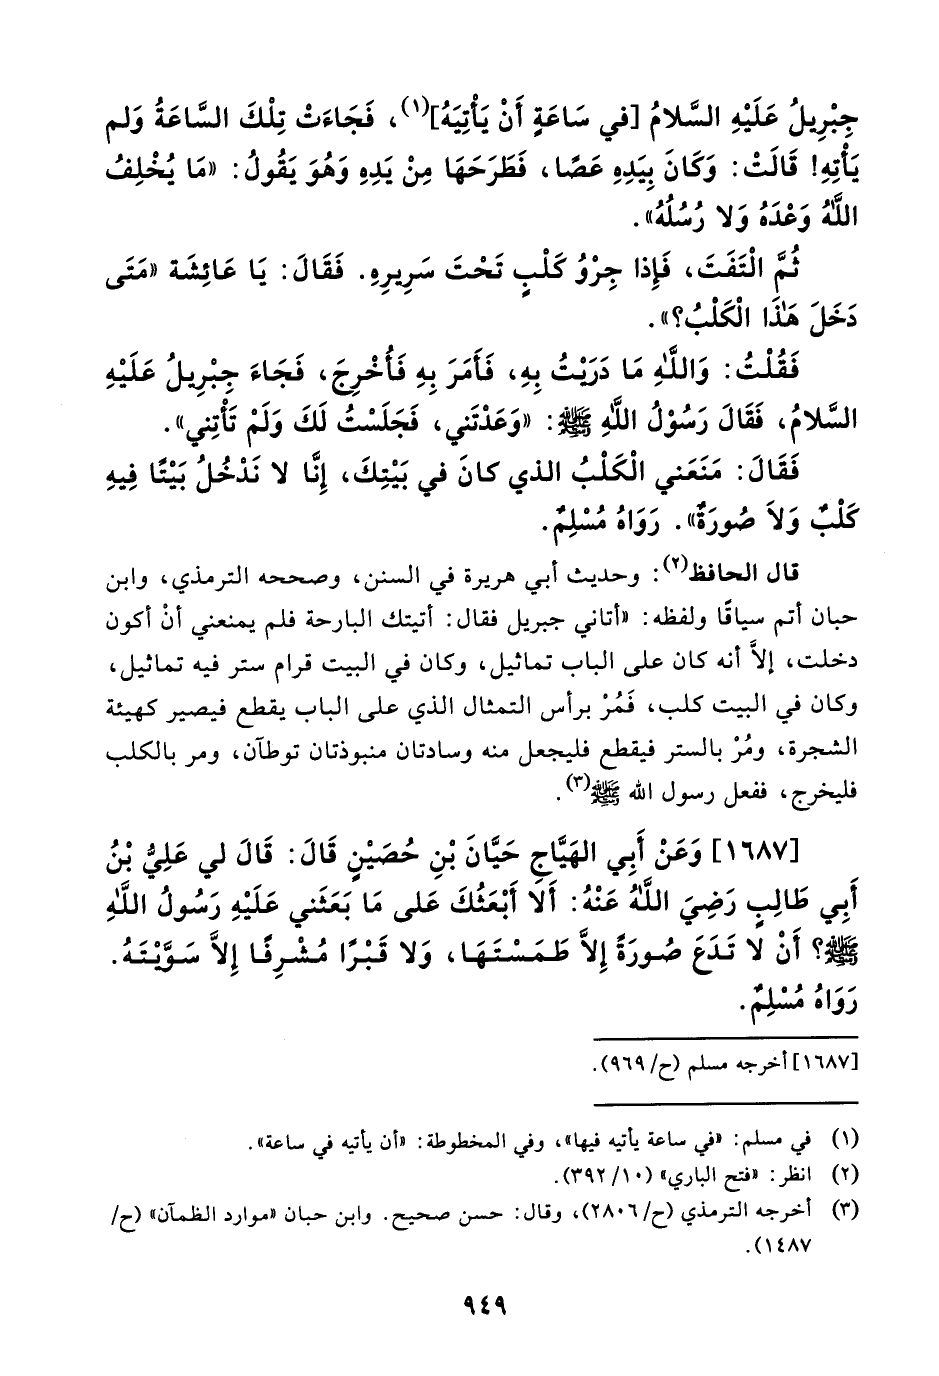 جِبْرِيلُ عَلَيْهِ السَّلامُ [في سَاعَةٍ أَنْ يَأْتِيَهُ](١)، فَجَاءَتْ تِلْكَ السَّاعَةُ وَلم
يَأْتِهِ! قَالَتْ: وَكَانَ بِيَدِهِ عَصًا، فَطَرَحَهَا مِنْ يَدِهِ وَهُوَ يَقُولُ: «مَا يُخْلِفُ
اللَّهُ وَعْدَهُ وَلا رُسُلُهُ».
ثُمَّ الْتَفَتَ، فَإِذا جِرْوُ كَلْبٍ تَحْتَ سَرِيرِهِ. فَقَالَ: يَا عَائِشَة «مَتَى
دَخَلَ هَذَا الْكَلْبُ؟».
فَقُلْتُ: وَاللَّهِ مَا دَرَيْتُ بِهِ، فَأَمَرَ بِهِ فَأُخْرِجَ، فَجَاءَ جِبْرِيلُ عَلَيْهِ
السَّلامُ، فَقَالَ رَسُوْلُ اللَّهِ ﷺ: «وَعَدْتَني، فَجَلَسْتُ لَكَ وَلَمْ تَأْتِني».
فَقَالَ: مَنَعَني الْكَلْبُ الذي كانَ في بَيْتِكَ، إِنَّا لا نَدْخُلُ بَيْتًا فِيهِ
كَلْبٌ وَلاَ صُورَةٌ». رَوَاهُ مُسْلِمٌ.
قال الحافظ(٢): وحديث أبي هريرة في السنن، وصححه الترمذي، وابن
حبان أتم سياقًا ولفظه: «أتاني جبريل فقال: أتيتك البارحة فلم يمنعني أنْ أكون
دخلت، إلاَّ أنه كان على الباب تماثيل، وكان في البيت قرام ستر فيه تماثيل،
وكان في البيت كلب، فَمُرْ برأس التمثال الذي على الباب يقطع فيصير كهيئة
الشجرة، ومُرْ بالستر فيقطع فليجعل منه وسادتان منبوذتان توطآن، ومر بالكلب
فليخرج، ففعل رسول الله ﷺ(٣).
[١٦٨٧] وَعَنْ أَبِي الهَيَّاجِ حَيَّانَ بْنِ حُصَيْنٍ قَالَ: قَالَ لي عَلِيُّ بْنُ
أَبِي طَالِبٍ رَضِيَ اللَّهُ عَنْهُ: أَلا أَبْعَثُكَ عَلى مَا بَعَثَني عَلَيْهِ رَسُولُ اللَّهِ
ﷺ؟ أَنْ لا تَدَعَ صُورَةً إِلاَّ طَمَسْتَهَا، وَلا قَبْرًا مُشْرِفًا إِلاَّ سَوَّيْتَهُ.
رَوَاهُ مُسْلِمٌ.
[١٦٨٧] أخرجه مسلم (ح/ ٩٦٩).
(١) في مسلم: «في ساعة يأتيه فيها»، وفي المخطوطة: «أن يأتيه في ساعة».
(٢) انظر: «فتح الباري» (١٠/ ٣٩٢).
(٣) أخرجه الترمذي (ح/ ٢٨٠٦)، وقال: حسن صحيح. وابن حبان «موارد الظمآن» (ح/
١٤٨٧).
٩٤٩